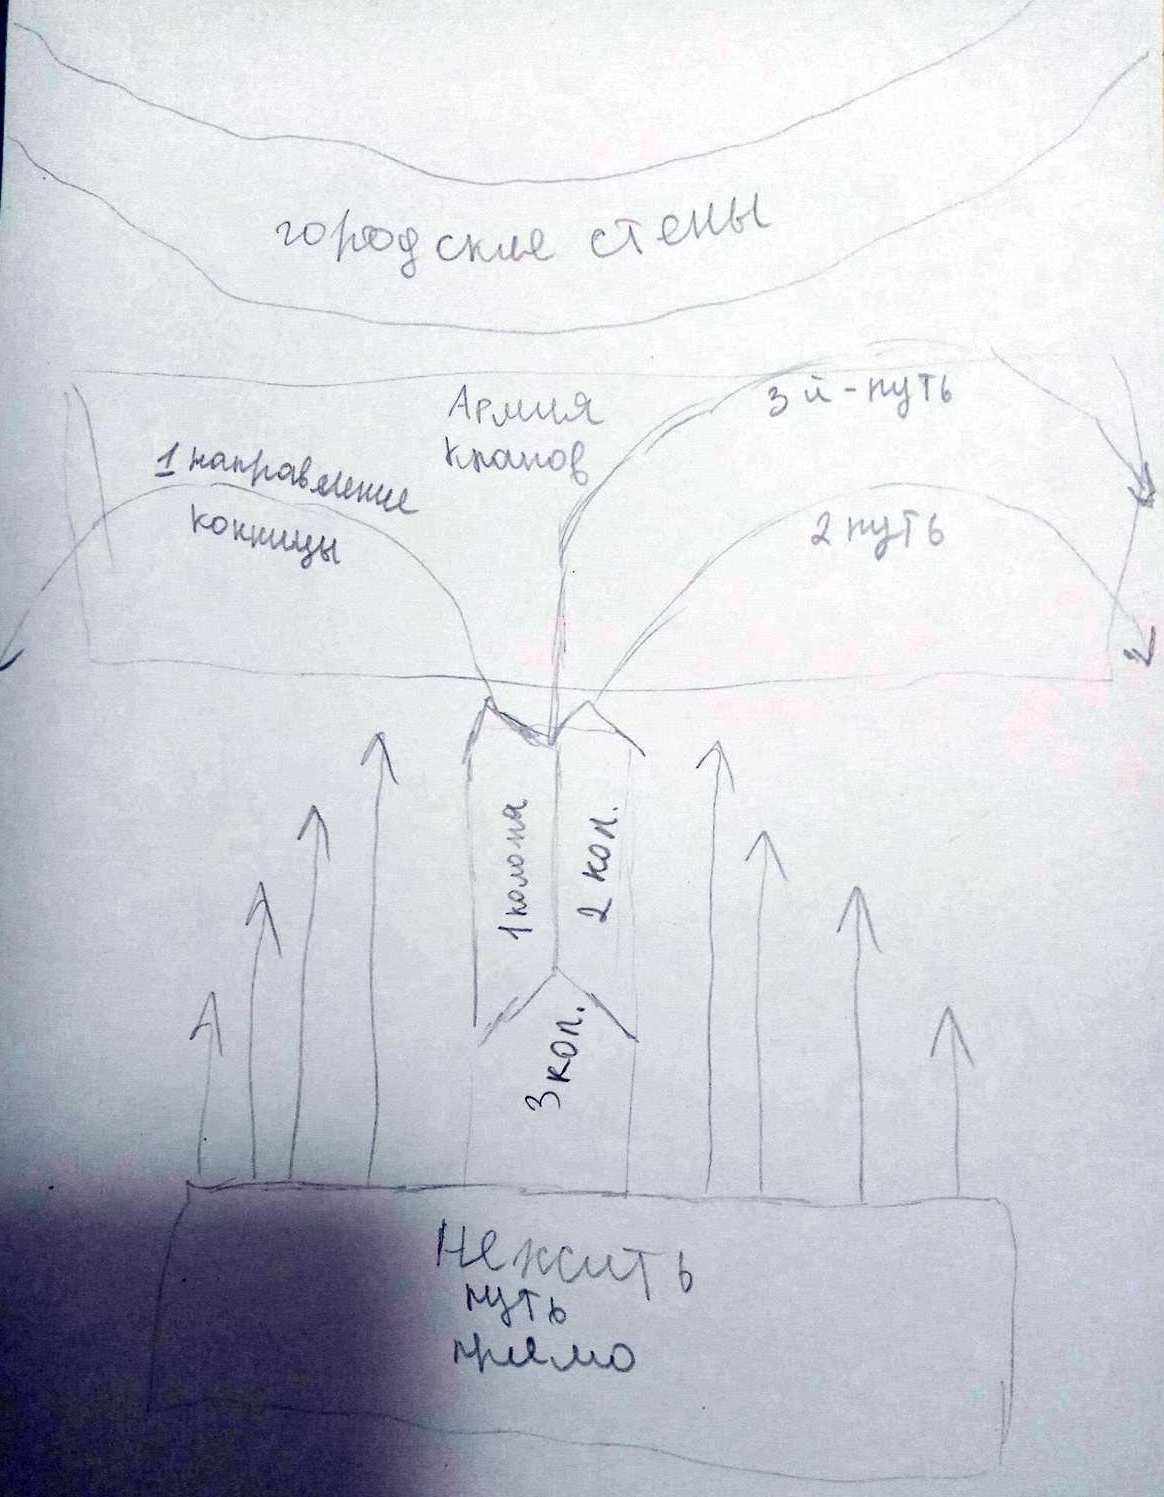 городские стены
Армия
кланов
3й-путь
1 направление
конницы
2 путь
1 колона
2 кол.
3 кол.
Нежить
путь
прямо